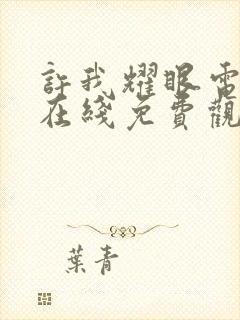 許我耀眼電
在綫免費觀
葉青